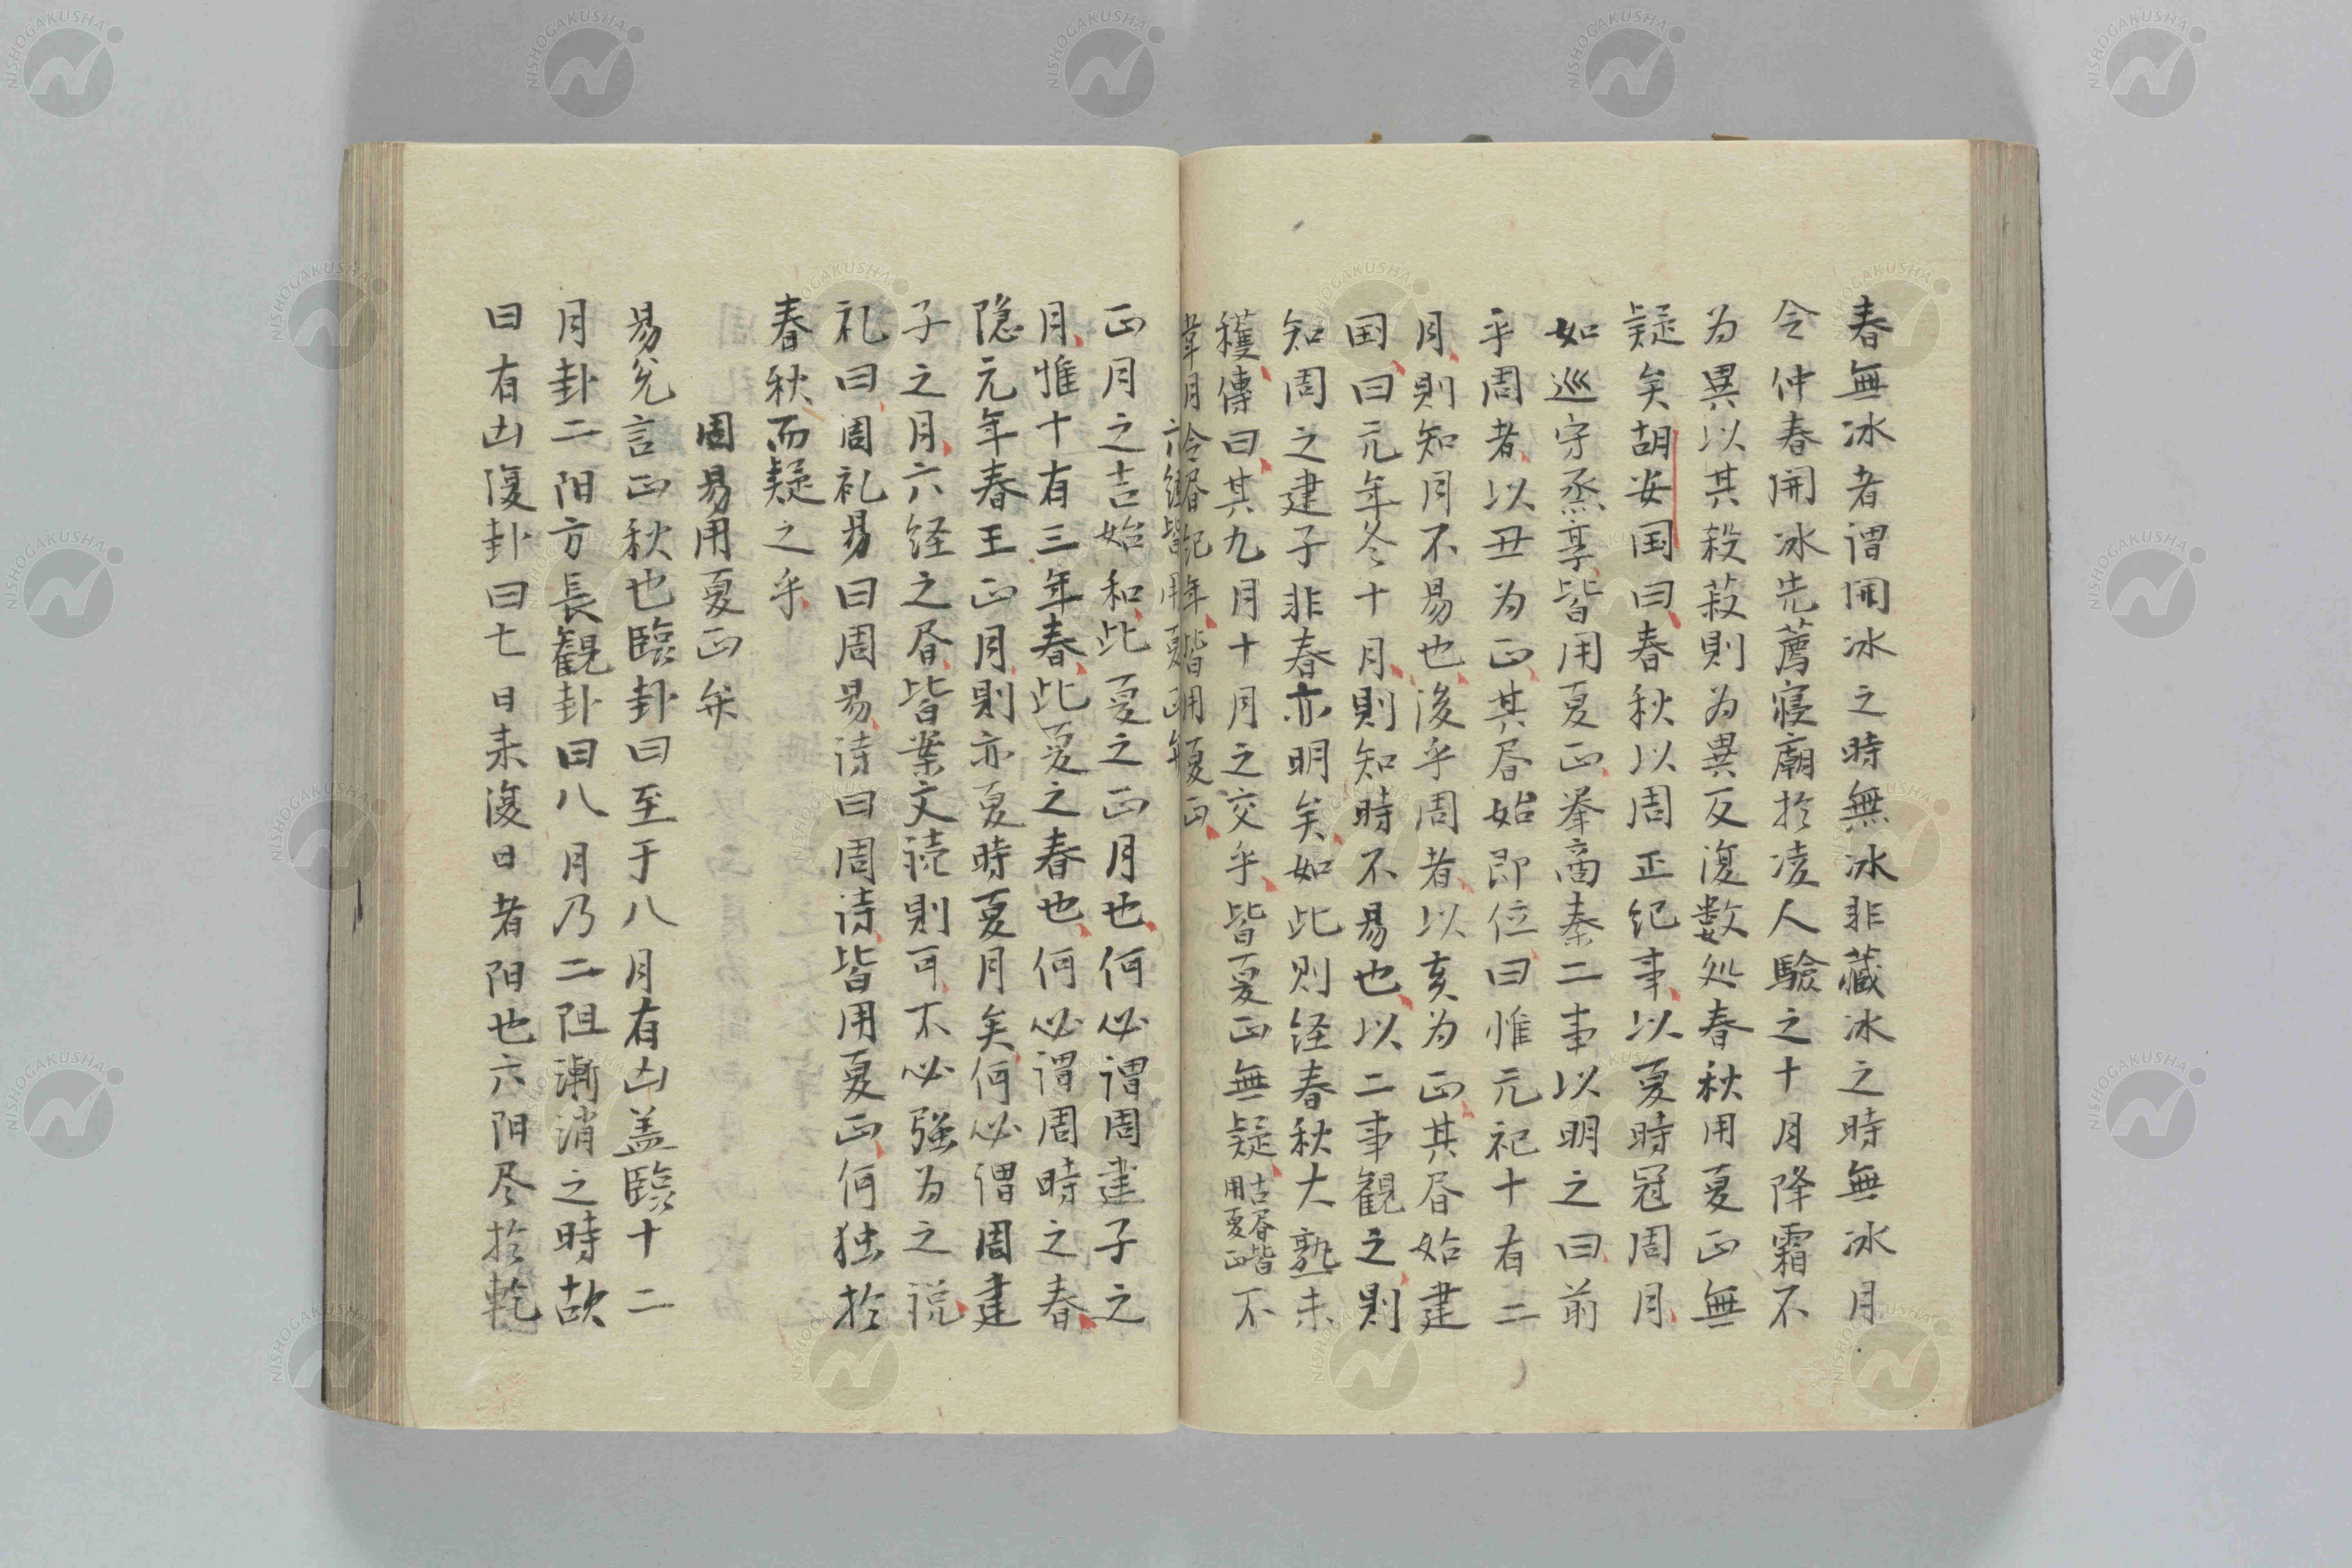 春無冰者謂開冰之時無冰非藏冰之時無冰月
令仲春開冰先薦寝廟於凌人驗之十月降霜不
为異以其殺菽則为異反復数処春秋用夏正無
疑矣胡安国曰春秋以周正紀事以夏時冠周月
如巡守烝享皆用夏正挙商秦二事以明之曰前
乎周者以丑为正其昬始即位曰惟元祀十有二
月則知月不易也後乎周者以亥为正其昬始建
国曰元年冬十月則知時不易也以二事観之則
知周之建子非春亦明矣如此則経春秋大熟未
穫傳曰其九月十月之交乎皆夏正無疑古昬皆用夏正不
韋月令昬紀年皆用夏正
六経皆用夏正年
正月之吉始和此夏之正月也何必謂周建子之
月惟十有三年春此夏之春也何必謂周時之春
隐元年春王正月則亦夏時夏月矣何必謂周建
子之月六経之昬皆業文読則可不必强为之説
礼曰周礼易曰周易诗曰周诗皆用夏正何独於
春秋而疑之乎
周易用夏正弁
易兌言正秋也臨卦曰至于八月有凶盖臨十二
月卦二阳方長観卦曰八月乃二阻漸消之時故
曰有凶復卦曰七日来復日者阳也六阳尽於乾
NISHOGAKUSHA